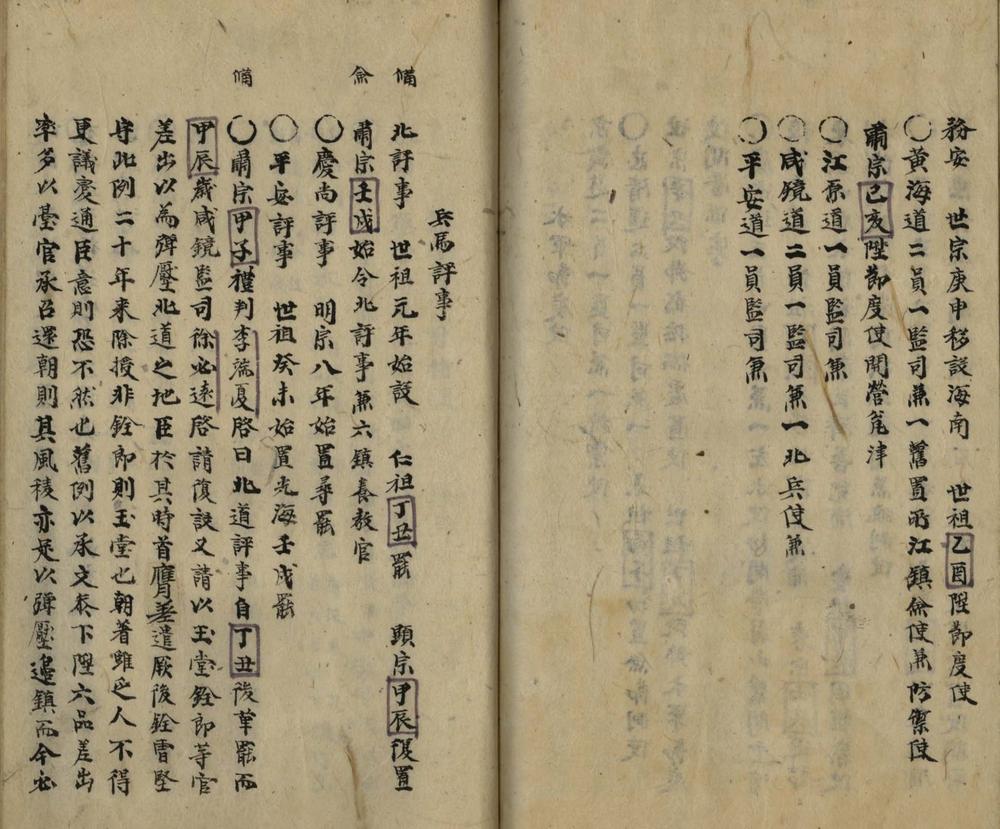 務安 世宗庚申移設海南 世祖乙酉陞節度使
〇黃海道二員一監司兼一舊置所江鎭僉使兼防禦使
肅宗己亥陞節度使開營瓮津
〇江原道一員監司兼
〇咸鏡道二員一監司兼一北兵使兼
〇平安道一員監司兼
兵馬評事
備 北評事 世祖元年始設 仁祖丁丑罷 顯宗甲辰復置
僉 肅宗壬戌始令北評事兼六鎭養敎官
〇慶尙評事 明宗八年始置尋罷
〇平安評事 世祖癸未始置光海壬戌罷
備 〇肅宗甲子禮判李端夏啓曰北道評事自丁丑後革罷而
甲辰歲咸鏡監司徐必遠啓請復設又請以玉堂銓郞等官
差出以爲彈壓北道之地臣於其時首膺差遣厥後銓曹堅
守此例二十年來除授非銓郞則玉堂也朝著雖乏人不得
更議變通臣意則恐不然也舊例以承文參下陞六品差出
率多以臺官承召還朝則其風稜亦足以彈壓邊鎭而今必